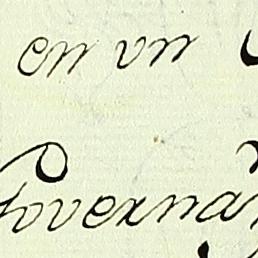 en vn
Governa